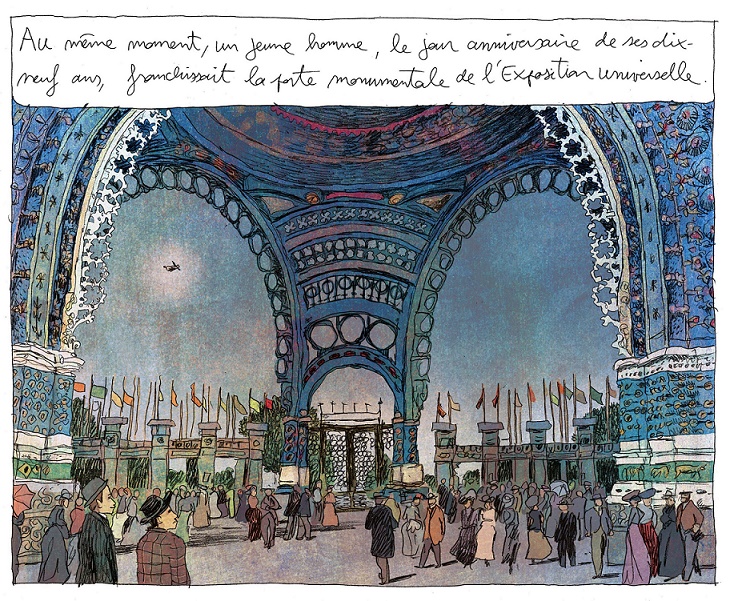 Au même moment, un jeune homme, le jour anniversaire de ses dix-
neuf ans, franchissait la porte monumentale de l'Exposition universelle.